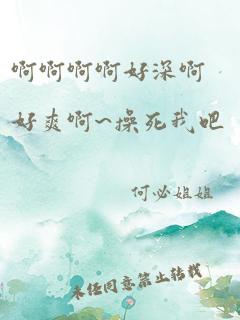 啊啊啊啊好深啊
好爽啊~操死我吧
何必姐姐
未经同意禁止转载